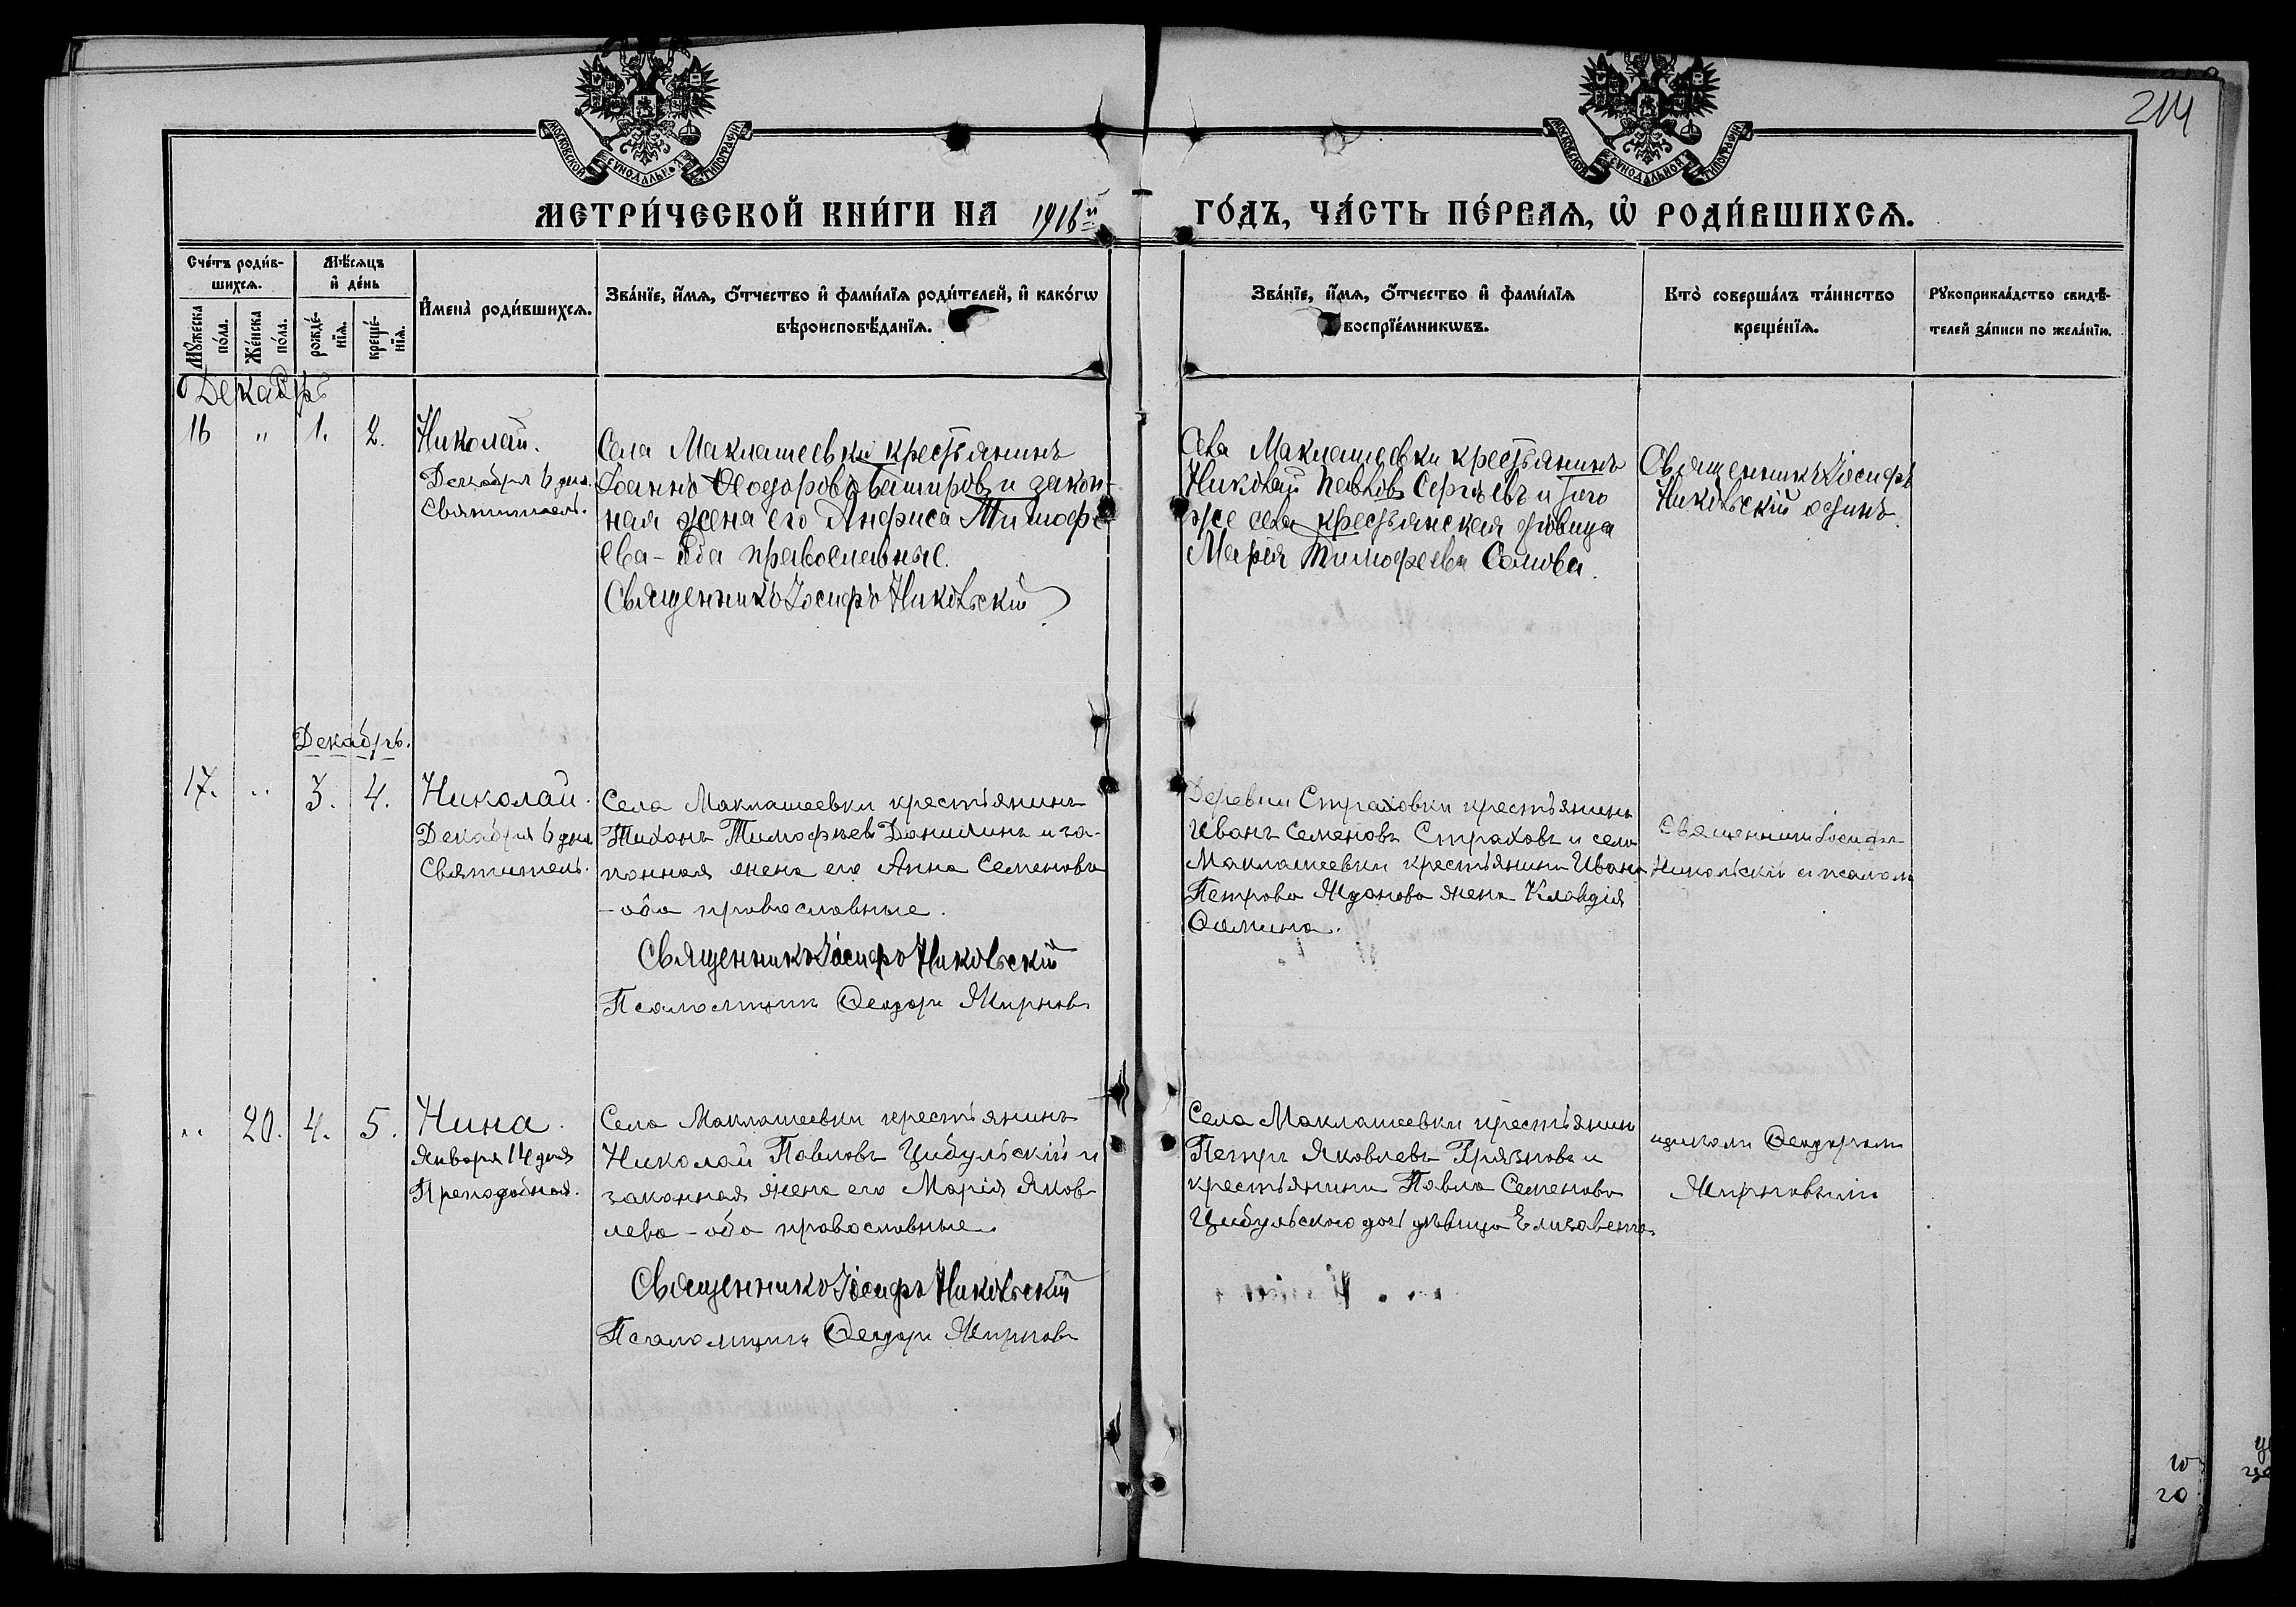 214
МОСКОВСКОЙ СУНОДАЛЬНОЙ ТИПОГРАФІИ
МОСКОВСКОЙ СУНОДАЛЬНОЙ ТИПОГРАФІИ
МЕТРИ́ЧЕСКОЙ КНИ́ГИ НА 1916й ГО́ДЪ, ЧА́СТЬ ПЕ́РВАѦ, Ѡ҆ РОДИ́ВШИХСѦ.
Сче́тъ роди́в-
шихсѧ.
Мѣ́сѧцъ
и҆ де́нь
Мꙋ́жеска
по́ла.
Же́нска
по́ла.
рожде́-
нїѧ.
креще́-
нїѧ.
И҆мена̀ роди́вшихсѧ.
Зва́нїе, и҆́мѧ, ѻ҆́тчество и҆ фами́лїѧ роди́телей, и҆ како́гѡ
вѣроисповѣ́данїѧ.
Зва́нїе, и҆́мѧ, ѻ҆́тчество и҆ фами́лїѧ
воспрїе́мникѡвъ.
Кто̀ соверша́лъ та́инство
креще́нїѧ.
Рꙋкоприкла́дство свидѣ́-
телей за́писи по жела́нїю.
Декабрь
16 " 1. 2.
Николай.
Декабря 6 дня.
Святитель.
Села Маклашеевки крестьянинъ
Іоаннъ Ѳеодоровъ Башировъ и закон-
ная жена его Анфиса Тимофе-
ева - оба православные.
Священникъ Іосифъ Никольскій
Села Маклашеевки крестьянинъ
Николай Павловъ Сергѣевъ и того
же села крестьянская дѣвица
Марія Тимофеева Сомова.
Священникъ Іосифъ
Никольскій одинъ.
Декабрь.
17. " 3. 4.
Николай.
Декабря 6 дня
Святитель.
Села Маклашеевки крестьянинъ
Тихонъ Тимофѣевъ Данилинъ и за-
конная жена его Анна Семенова
- оба православные.
Священникъ Іосифъ Никольскій
Псаломщикъ Ѳеодоръ Жирновъ
Деревни Страховки крестьянинъ
Иванъ Семеновъ Страховъ и села
Маклашеевки крестьянина Ивана
Петрова Жданова жена Клавдія
Ѳомина.
Священникъ Іосифъ
Никольскій и псалом
" 20. 4. 5.
Нина.
Января 14 дня
Преподобная.
Села Маклашеевки крестьянинъ
Николай Павловъ Цибульскій и
законная жена его Марія Яков-
лева - оба православные.
Священникъ Іосифъ Никольскій
Псаломщикъ Ѳеодоръ Жирновъ
Села Маклашеевки крестьянинъ
Петръ Яковлевъ Грязновъ и
крестьянина Павла Семенова
Цибульскаго дочь дѣвица Елизавета
щикомъ Ѳеодоромъ
Жирновымъ
10
20